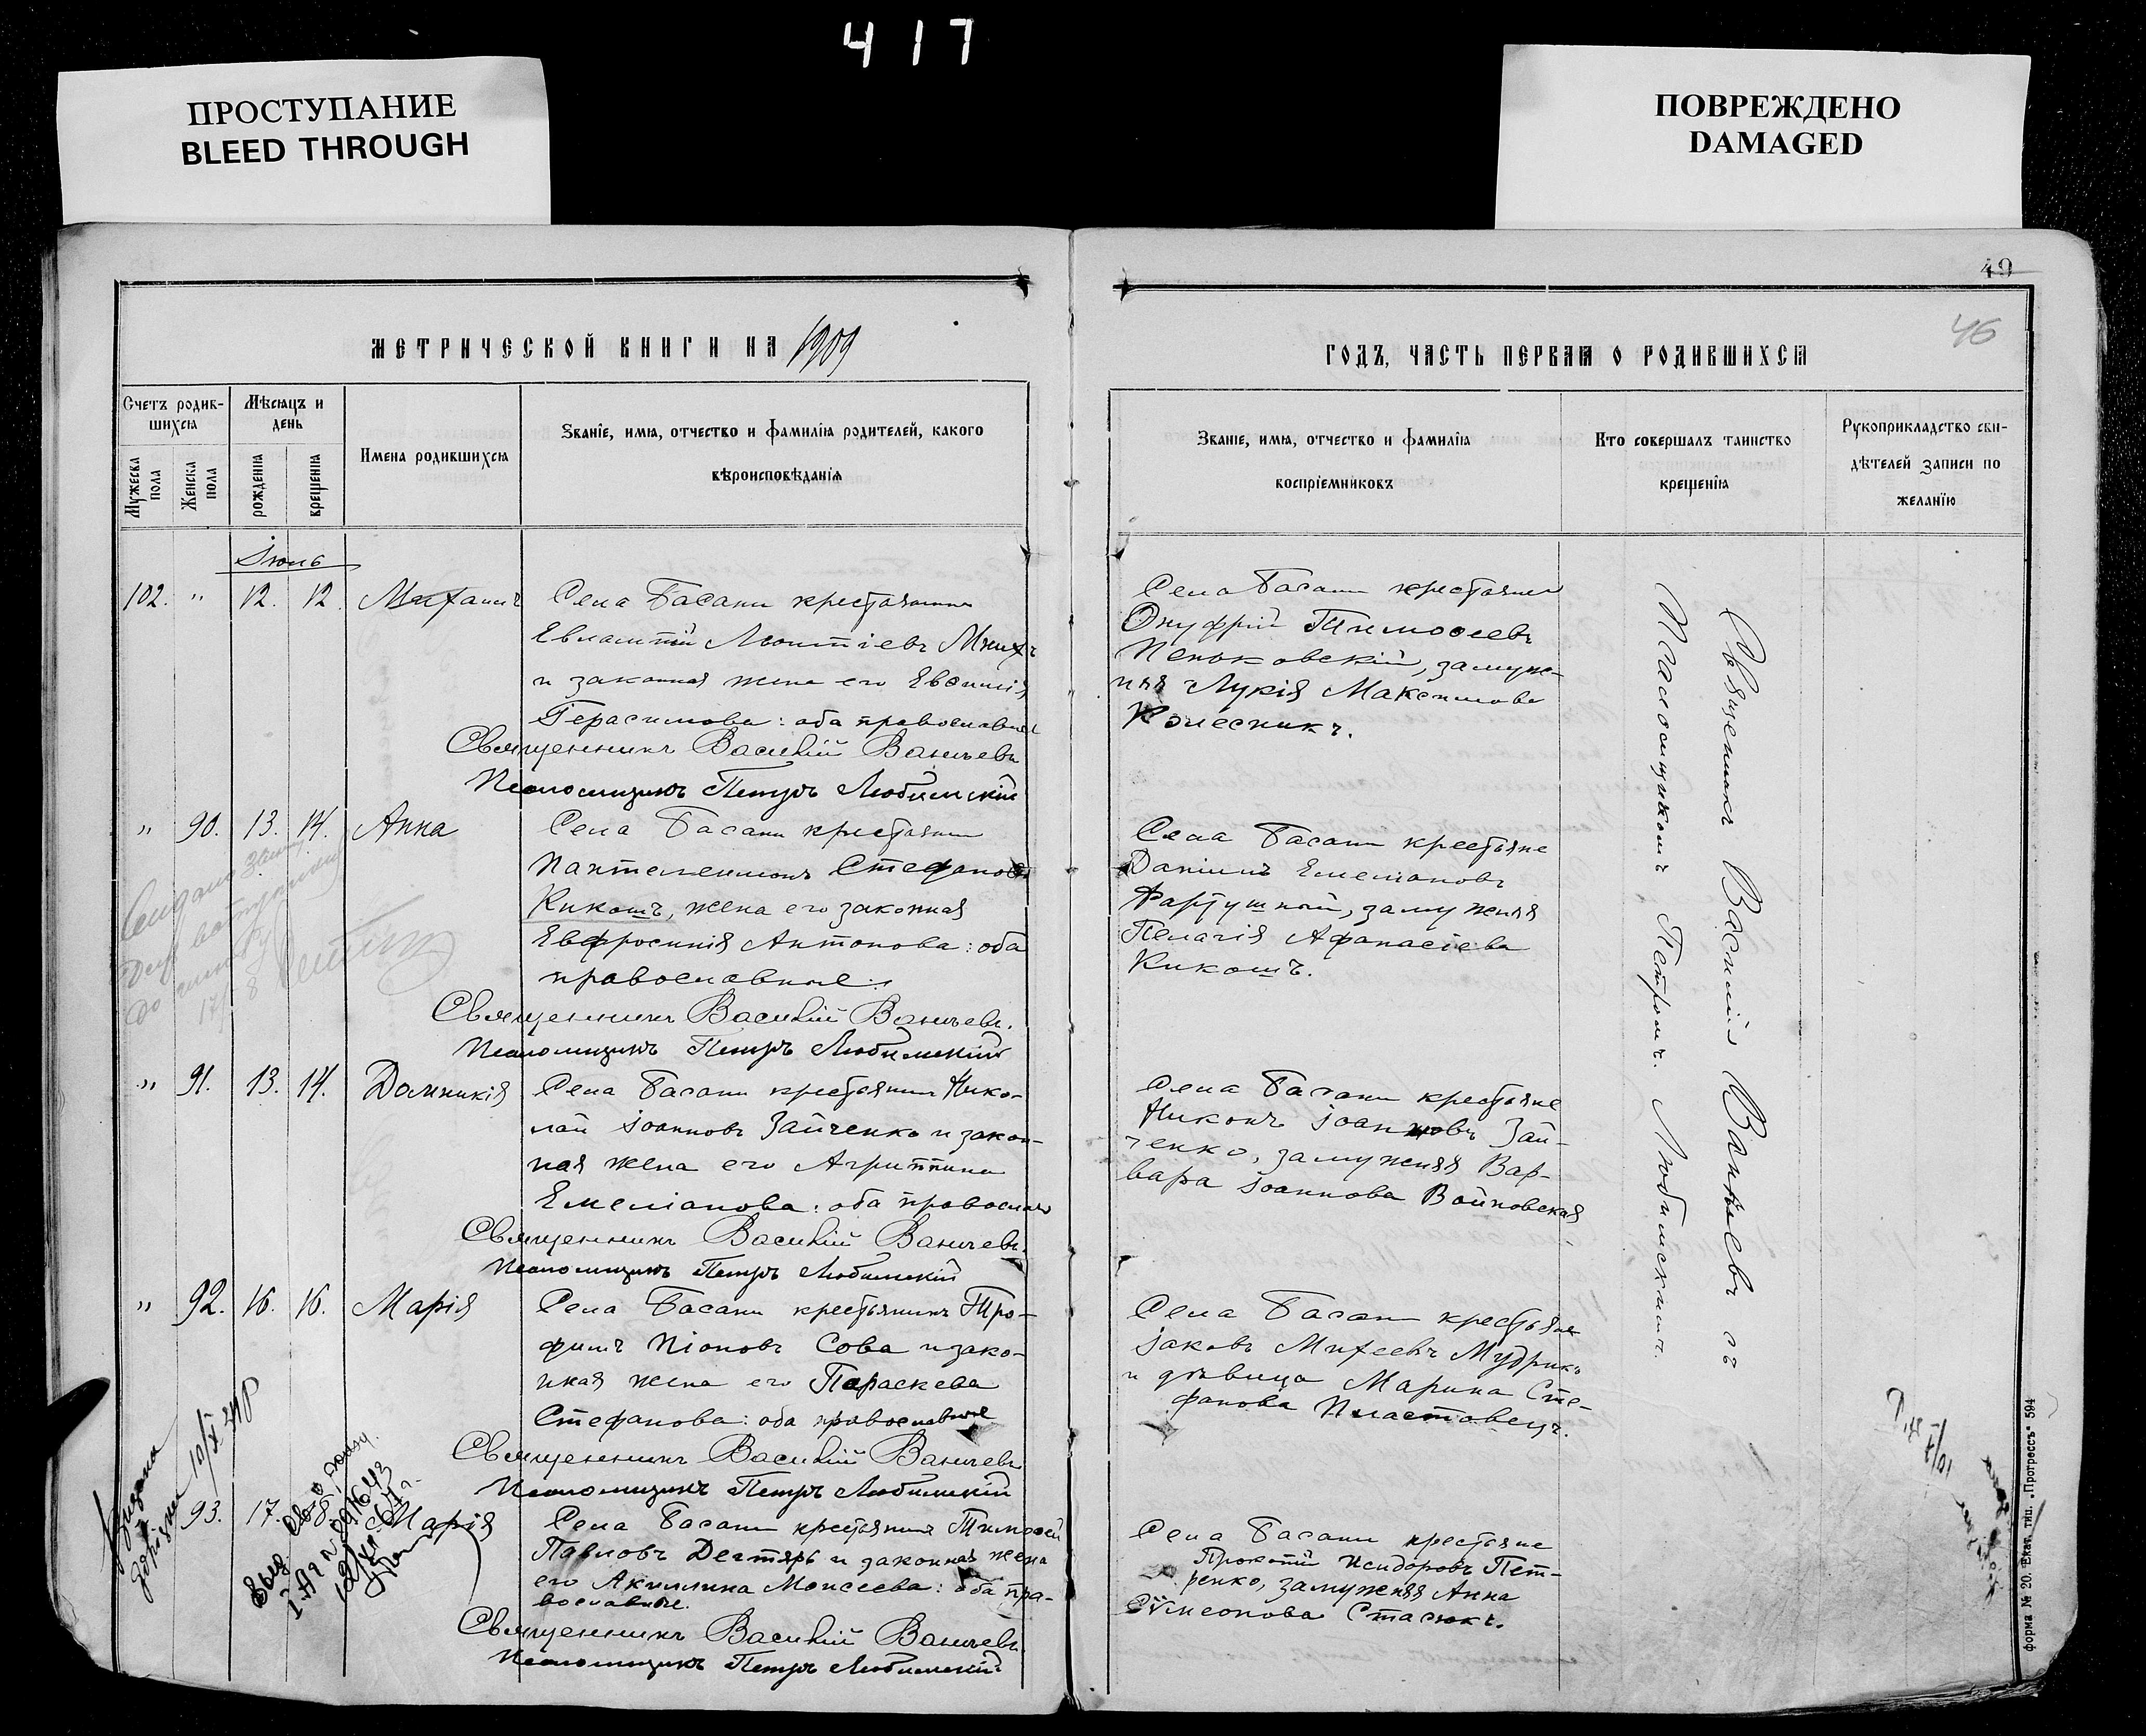 417
ПРОСТУПАНИЕ
BLEED THROUGH
ПОВРЕЖДЕНО
DAMAGED
49
46
МЕТРИЧЕСКОЙ КНИГИ НА 1909
ГОДЪ, ЧАСТЬ ПЕРВАЯ О РОДИВШИХСЯ
Счетъ родив-
шихся
Мѣсяцъ и
день
Мужеска
пола
Женска
пола
рожденія
крещенія
Имена родившихся
Званіе, имя, отчество и фамилія родителей, какого
вѣроисповѣданія
Званіе, имя, отчество и фамилія
воспріемниковъ
Кто совершалъ таинство
крещенія
Рукоприкладство сви-
дѣтелей записи по
желанію
Іюль
102. " 12. 12. Михаилъ
Села Басани крестьянинъ
Евлампій Леонтіевъ Мнихъ
и законная жена его Евѳимія
Герасимова: оба православные
Священникъ Василій Ваничевъ
Псаломщикъ Петръ Любимскій
Села Басани крестьяне
Онуфрій Тимоѳеевъ
Пеньковскій, замуж-
няя Лукія Максимова
Колесникъ.
" 90. 13. 14. Анна
Села Басани крестьянинъ
Пантелеимонъ Стефановъ
Кикошъ, жена его законная
Евфросинія Антонова: оба
православные.
Священникъ Василій Ваничевъ.
Псаломщикъ Петръ Любимскій
Села Басани крестьяне
Даніилъ Емеліановъ
Фартушный, замужняя
Пелагія Афанасіева
Кикошъ.
" 91. 13. 14. Домникія
Села Басани крестьянинъ Нико-
лай Іоанновъ Зайченко и закон-
ная жена его Агриппина
Емеліанова: оба православн
Священникъ Василій Ваничевъ.
Псаломщикъ Петръ Любимскій
Села Басани крестьяне
Никонъ Іоанновъ Зай-
ченко, замужняя Вар-
вара Іоаннова Войновская
" 92. 16. 16. Марія
Села Басани крестьянинъ Тро-
фимъ Піоновъ Сова и зако-
нная жена его Параскева
Стефанова: оба православные
Священникъ Василій Ваничевъ
Псаломщикъ Петръ Любимскій
Села Басани крестьяне
Іаковъ Михеевъ Мудрикъ
и дѣвица Марина Сте-
фанова Пластовецъ.
93. 17. Марія
Села Басани крестьянинъ Тимоѳей
Павловъ Дегтярь и законная жена
его Акилина Моисеева: оба пра-
вославные.
Священникъ Василій Ваничевъ.
Псаломщикъ Петръ Любимскій
Села Басани крестьяне
Прокопій Исидоровъ Пет-
ренко, замужняя Анна
Сѵмеонова Стасюкъ.
Священникъ Василій Ваничевъ съ
Псаломщикомъ Петромъ Любимскимъ.
форма № 20. Екат. тип. „Прогрессъ" 594